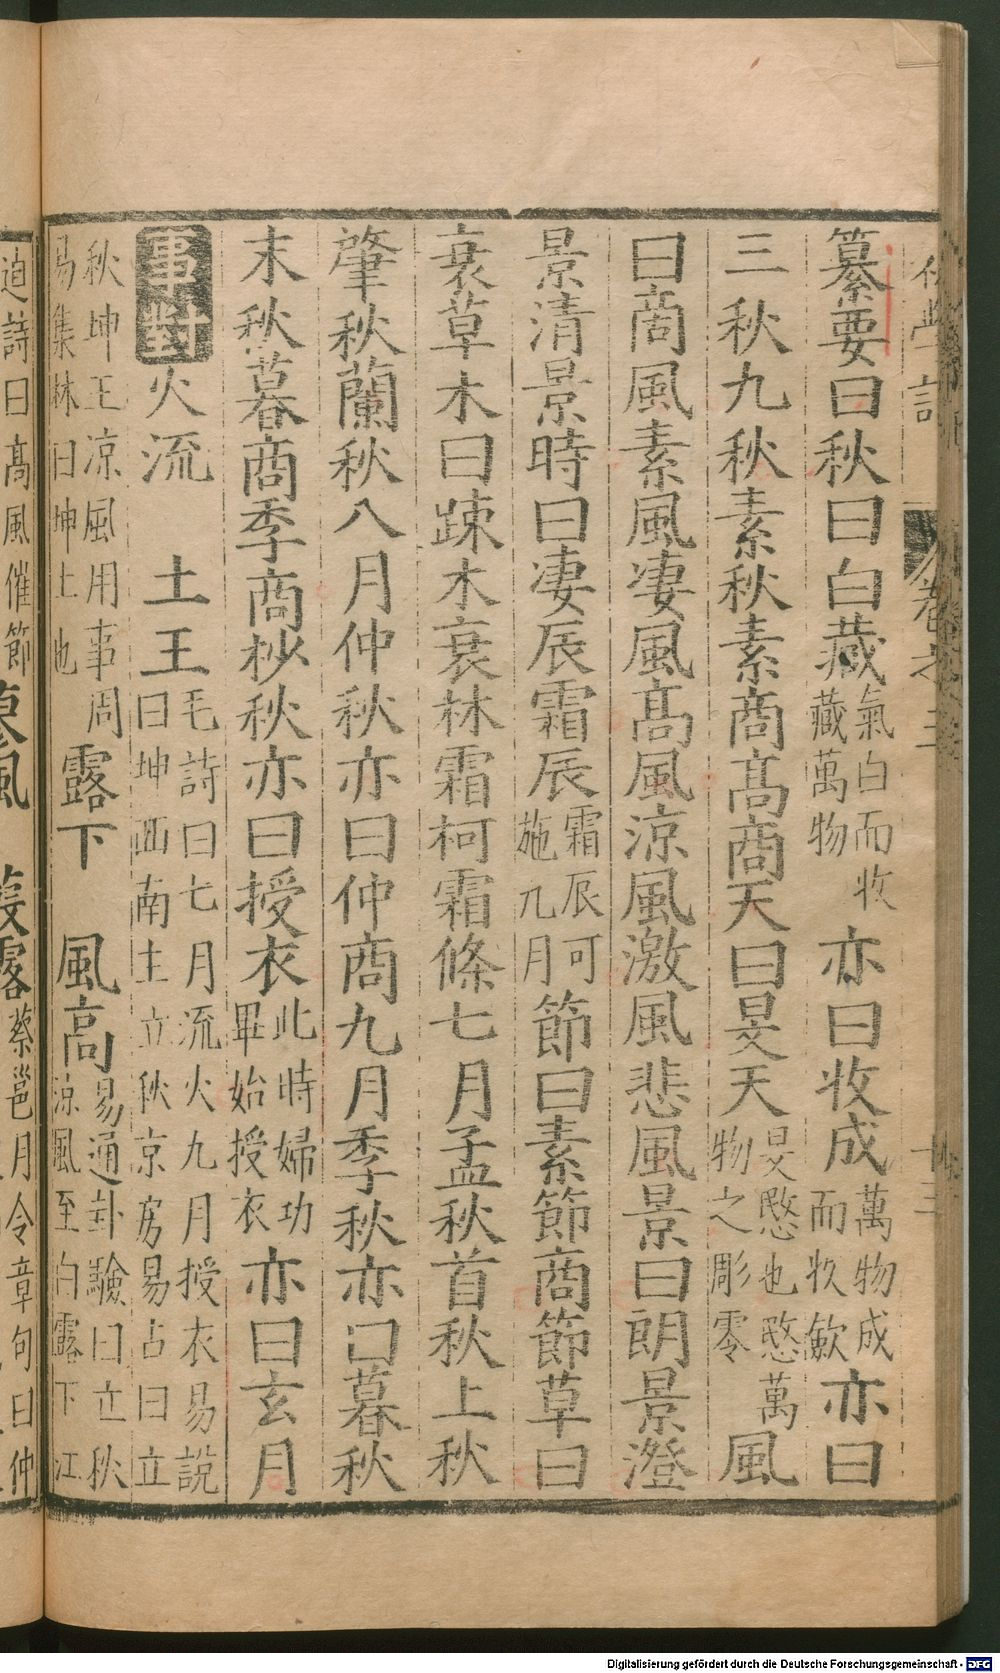 纂要曰秋曰白藏氣白而收藏萬物亦曰收成萬物成而收歛亦曰
三秋九秋素秋素商髙商天曰旻天旻愍也愍萬物之彫零風
曰商風素風凄風髙風凉風激風悲風景曰朗景澄
景清景時曰凄辰霜辰霜辰可施九月節曰素節商節草曰
衰草木曰疎木衰林霜柯霜條七月孟秋首秋上秋
肇秋蘭秋八月仲秋亦曰仲商九月季秋亦曰暮秋
末秋暮商季商杪秋亦曰授衣此時婦功畢始授衣亦曰玄月
事對火流 土王毛詩曰七月流火九月授衣易說曰坤西南土立秋京房易占曰立
秋坤王凉風用事周易集林曰坤土也露下 風高易通卦驗曰立秋凉風至白露下江
迫詩曰髙風催節 蔡邕月令章句曰仲
Digitalisierung gefördert durch die Deutsche Forschungsgemeinschaft - DFG